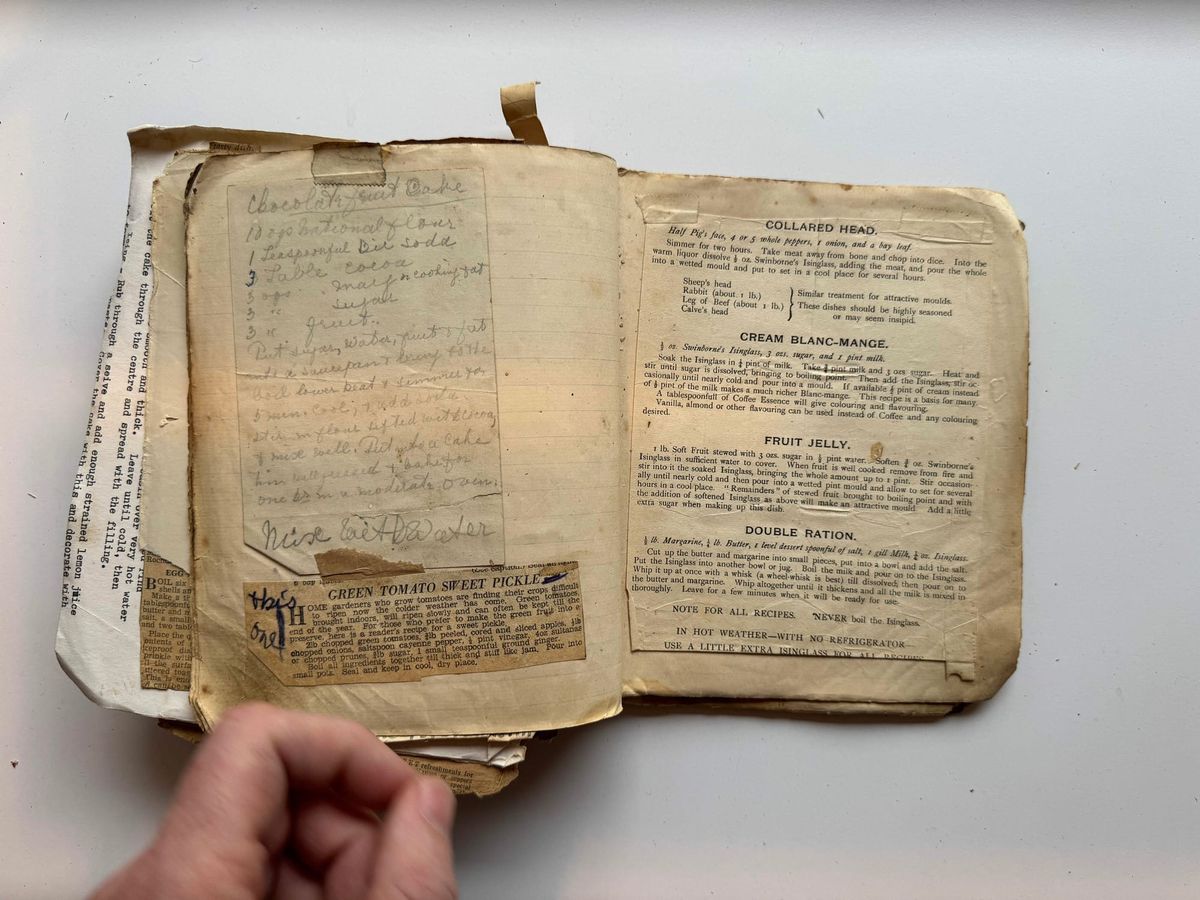 Chocolate Fruit Cake
10 ozs National flour
1 Teaspoonful Bic Soda
3 Table cocoa
3 ozs marg or cooking fat
3 " sugar
3 " fruit.
Put sugar, water, fruit & fat
into a saucepan & bring to the
boil lower heat & simmer for
5 min. Cool, add soda
stir in flour sifted with cocoa
& mix well. Put into a cake
tin well greased & bake for
one hr in a moderate oven.
Mix with Water
this
one
GREEN TOMATO SWEET PICKLE
HOME gardeners who grow tomatoes are finding their crops difficult
to ripen now the colder weather has come. Green tomatoes,
brought indoors, will ripen slowly and can often be kept till the
end of the year. For those who prefer to make the green fruit into a
preserve, here is a reader's recipe for a sweet pickle.
2lb chopped green tomatoes, ¾lb peeled, cored and sliced apples, ½lb
chopped onions, saltspoon cayenne pepper, ½ pint vinegar, 4oz sultanas
or chopped prunes, ¾lb sugar, 1 small teaspoonful ground ginger.
Boil all ingredients together till thick and stiff like jam. Pour into
small pots. Seal and keep in cool, dry place.
COLLARED HEAD.
Half Pig's face, 4 or 5 whole peppers, 1 onion, and a bay leaf.
Simmer for two hours. Take meat away from bone and chop into dice. Into the
warm liquor dissolve ½ oz. Swinborne's Isinglass, adding the meat, and pour the whole
into a wetted mould and put to set in a cool place for several hours.
Sheep's head
Rabbit (about 1 lb.)
Leg of Beef (about 1 lb.)
Calve's head
Similar treatment for attractive moulds.
These dishes should be highly seasoned
or may seem insipid.
CREAM BLANC-MANGE.
½ oz. Swinborne's Isinglass, 3 ozs. sugar, and 1 pint milk.
Soak the Isinglass in ¼ pint of milk. Take ¾ pint milk and 3 ozs sugar. Heat and
stir until sugar is dissolved, bringing to boiling point. Then add the Isinglass, stir oc-
casionally until nearly cold and pour into a mould. If available ½ pint of cream instead
of ½ pint of the milk makes a much richer Blanc-mange. This recipe is a basis for many.
A tablespoonfull of Coffee Essence will give colouring and flavouring.
Vanilla, almond or other flavouring can be used instead of Coffee and any colouring
desired.
FRUIT JELLY.
1 lb. Soft Fruit stewed with 3 ozs. sugar in ½ pint water. Soften ¾ oz. Swinborne's
Isinglass in sufficient water to cover. When fruit is well cooked remove from fire and
stir into it the soaked Isinglass, bringing the whole amount up to 1 pint. Stir occasion-
ally until nearly cold and then pour into a wetted pint mould and allow to set for several
hours in a cool place. "Remainders" of stewed fruit brought to boiling point and with
the addition of softened Isinglass as above will make an attractive mould Add a little
extra sugar when making up this dish.
DOUBLE RATION.
½ lb. Margarine, ¼ lb. Butter, 1 level dessert spoonful of salt, 1 gill Milk, ¼ oz. Isinglass.
Cut up the butter and margarine into small pieces, put into a bowl and add the salt.
Put the Isinglass into another bowl or jug. Boil the milk and pour on to the Isinglass.
Whip it up at once with a whisk (a wheel-whisk is best) till dissolved; then pour on to
the butter and margarine. Whip altogether until it thickens and all the milk is mixed in
thoroughly. Leave for a few minutes when it will be ready for use.
NOTE FOR ALL RECIPES. NEVER boil the Isinglass.
IN HOT WEATHER—WITH NO REFRIGERATOR
USE A LITTLE EXTRA ISINGLASS FOR ALL RECIPES
smooth and thick.
over very hot water
the cake through the centre and spread with the filling.
Leave until cold, then
Rub through a seive and add enough strained lemon juice
Cover the cake with this and decorate with
tasty dish.
EGG
BOIL six
shells an
Make a
tablespoonfu
salt, a small
and two tabl
Place the
refreshments for
special